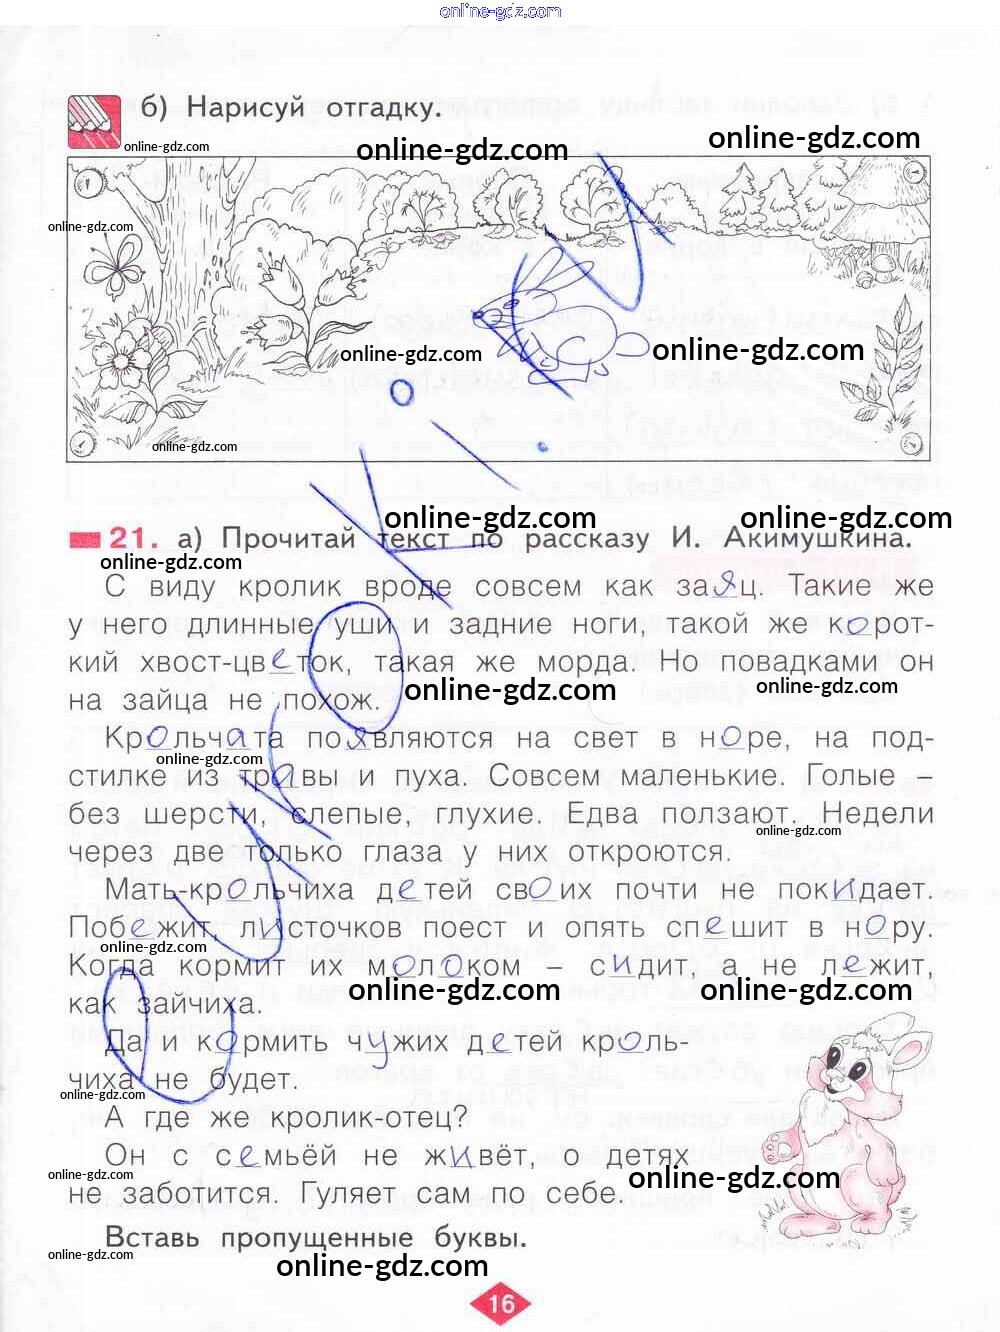 online-gdz.com
б) Нарисуй отгадку.
online-gdz.com
online-gdz.com
online-gdz.com
online-gdz.com
online-gdz.com
online-gdz.com
online-gdz.com
ouroki.ru
online-gdz.com
online-gdz.com
21. а) Прочитай текст по рассказу И. Акимушкина.
online-gdz.com
С виду кролик вроде совсем как заяц. Такие же
у него длинные уши и задние ноги, такой же корот-
кий хвост-цветок, такая же морда. Но повадками он
online-gdz.com
online-gdz.com
на зайца не похож.
Крольчата появляются на свет в норе, на под-
online-gdz.com
стилке из травы и пуха. Совсем маленькие. Голые –
без шерсти, слепые, глухие. Едва ползают. Недели
online-gdz.com
через две только глаза у них откроются.
Мать-крольчиха детей своих почти не покидает.
Побежит, листочков поест и опять спешит в нору.
Когда кормит их молоком – сидит, а не лежит,
online-gdz.com
online-gdz.com
как зайчиха.
Да и кормить чужих детей кроль-
чиха не будет.
online-gdz.com
А где же кролик-отец?
Он с семьёй не живёт, о детях
online-gdz.com
online-gdz.com
не заботится. Гуляет сам по себе.
Вставь пропущенные буквы.
online-gdz.com
online-gdz.com
16